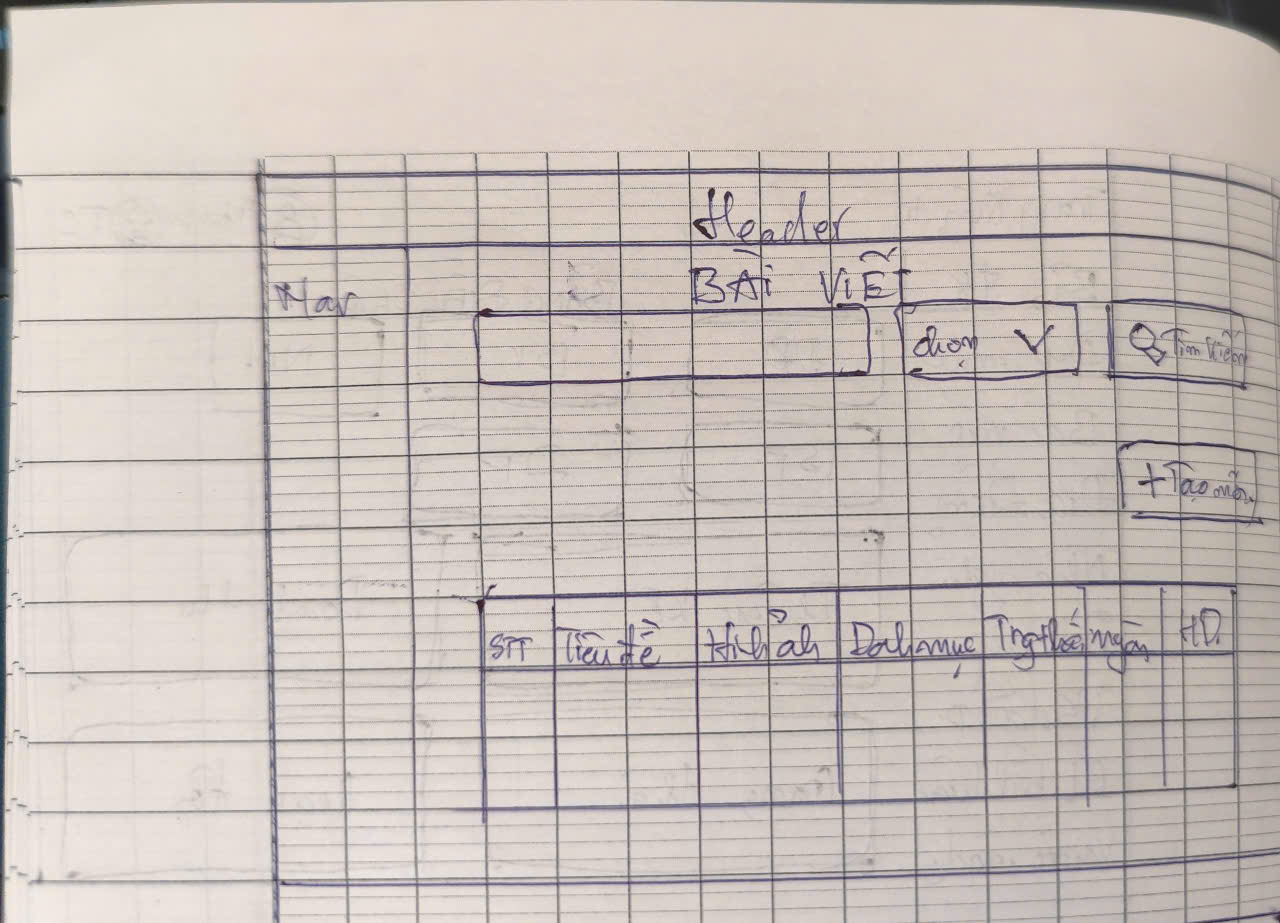 Header
BÀI VIẾT
Nav
chọn V
Tìm kiếm
+ Tạo mới
STT Tiêu đề Hình ảnh Danh mục Trạng thái HD